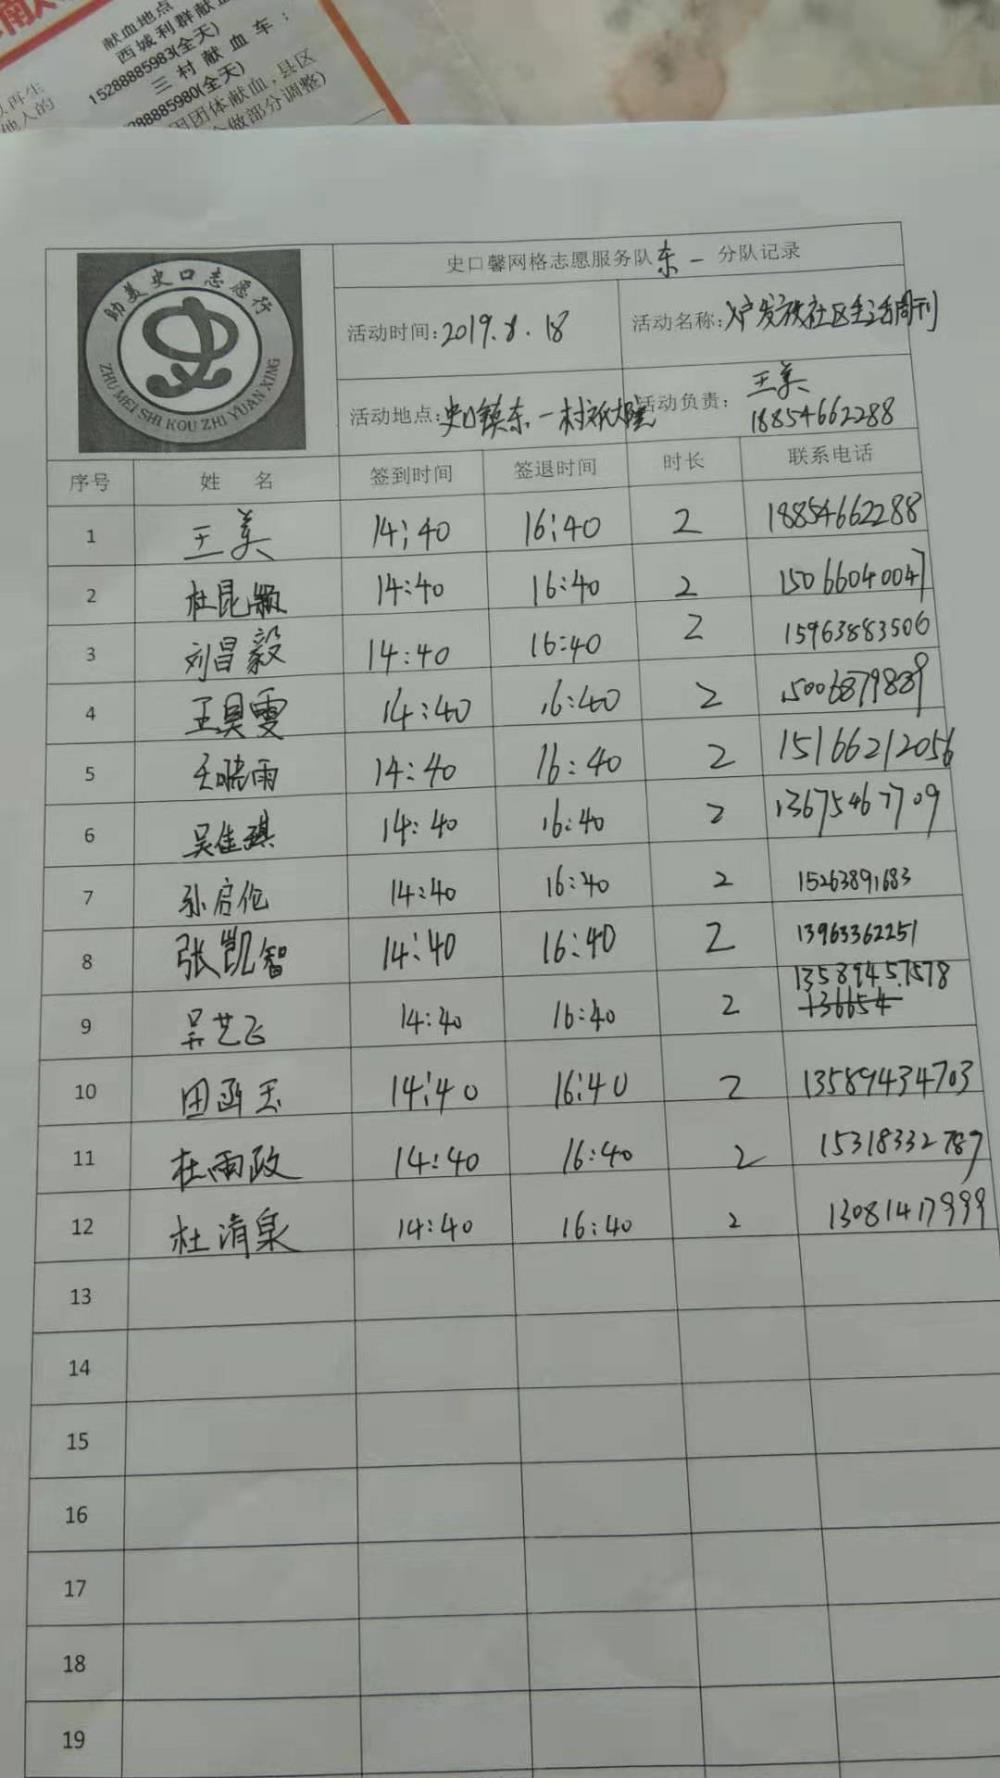 献血地点
西城利群献血
15288885983(全天)
三村献血车：
88885980(全天)
因团体献血,县区
做部分调整)
再生
他人的
助美史口志愿行
ZHU MEI SHI KOU ZHI YUAN XING
史口馨网格志愿服务队 东一 分队记录
活动时间: 2019.8.18 活动名称: 入户发放社区生活周刊
活动地点: 史口镇东一村 大院 活动负责: 王美 18854662288
序号 姓 名 签到时间 签退时间 时长 联系电话
1 王美 14:40 16:40 2 18854662288
2 杜昆颖 14:40 16:40 2 15066040047
3 刘昌毅 14:40 16:40 2 15963883506
4 王昊雯 14:40 16:40 2 15006879839
5 王晓雨 14:40 16:40 2 15166212056
6 吴佳琪 14:40 16:40 2 13675467709
7 孙启伦 14:40 16:40 2 15263891683
8 张凯智 14:40 16:40 2 13963362251
9 吴艺飞 14:40 16:40 2 13589457578
136654
10 田函玉 14:40 16:40 2 13589434703
11 杜雨政 14:40 16:40 2 15318332787
12 杜清泉 14:40 16:40 2 13081417999
13
14
15
16
17
18
19